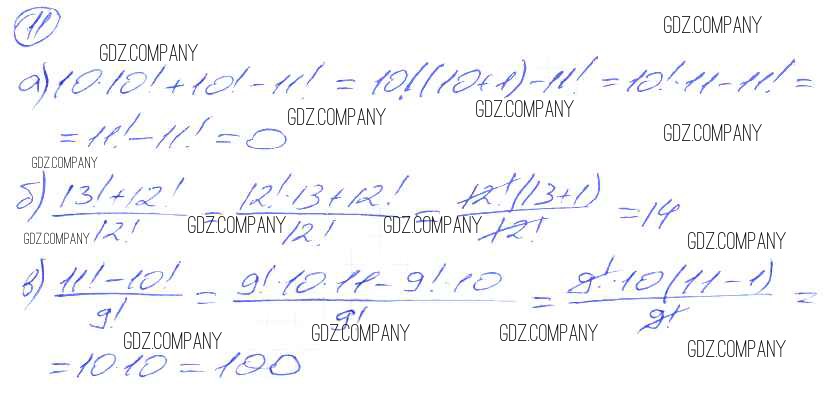 11
GDZ.COMPANY
GDZ.COMPANY
а) 10·10! + 10! - 11! = 10!(10+1) - 11! = 10!·11 - 11! =
GDZ.COMPANY GDZ.COMPANY
= 11! - 11! = 0
GDZ.COMPANY
GDZ.COMPANY
б) (13!+12!)/12! = (12!·13+12!)/12! = (12!(13+1))/12! = 14
GDZ.COMPANY GDZ.COMPANY GDZ.COMPANY GDZ.COMPANY
в) (11!-10!)/9! = (9!·10·11-9!·10)/9! = (9!·10(11-1))/9! =
GDZ.COMPANY GDZ.COMPANY GDZ.COMPANY GDZ.COMPANY
= 10·10 = 100